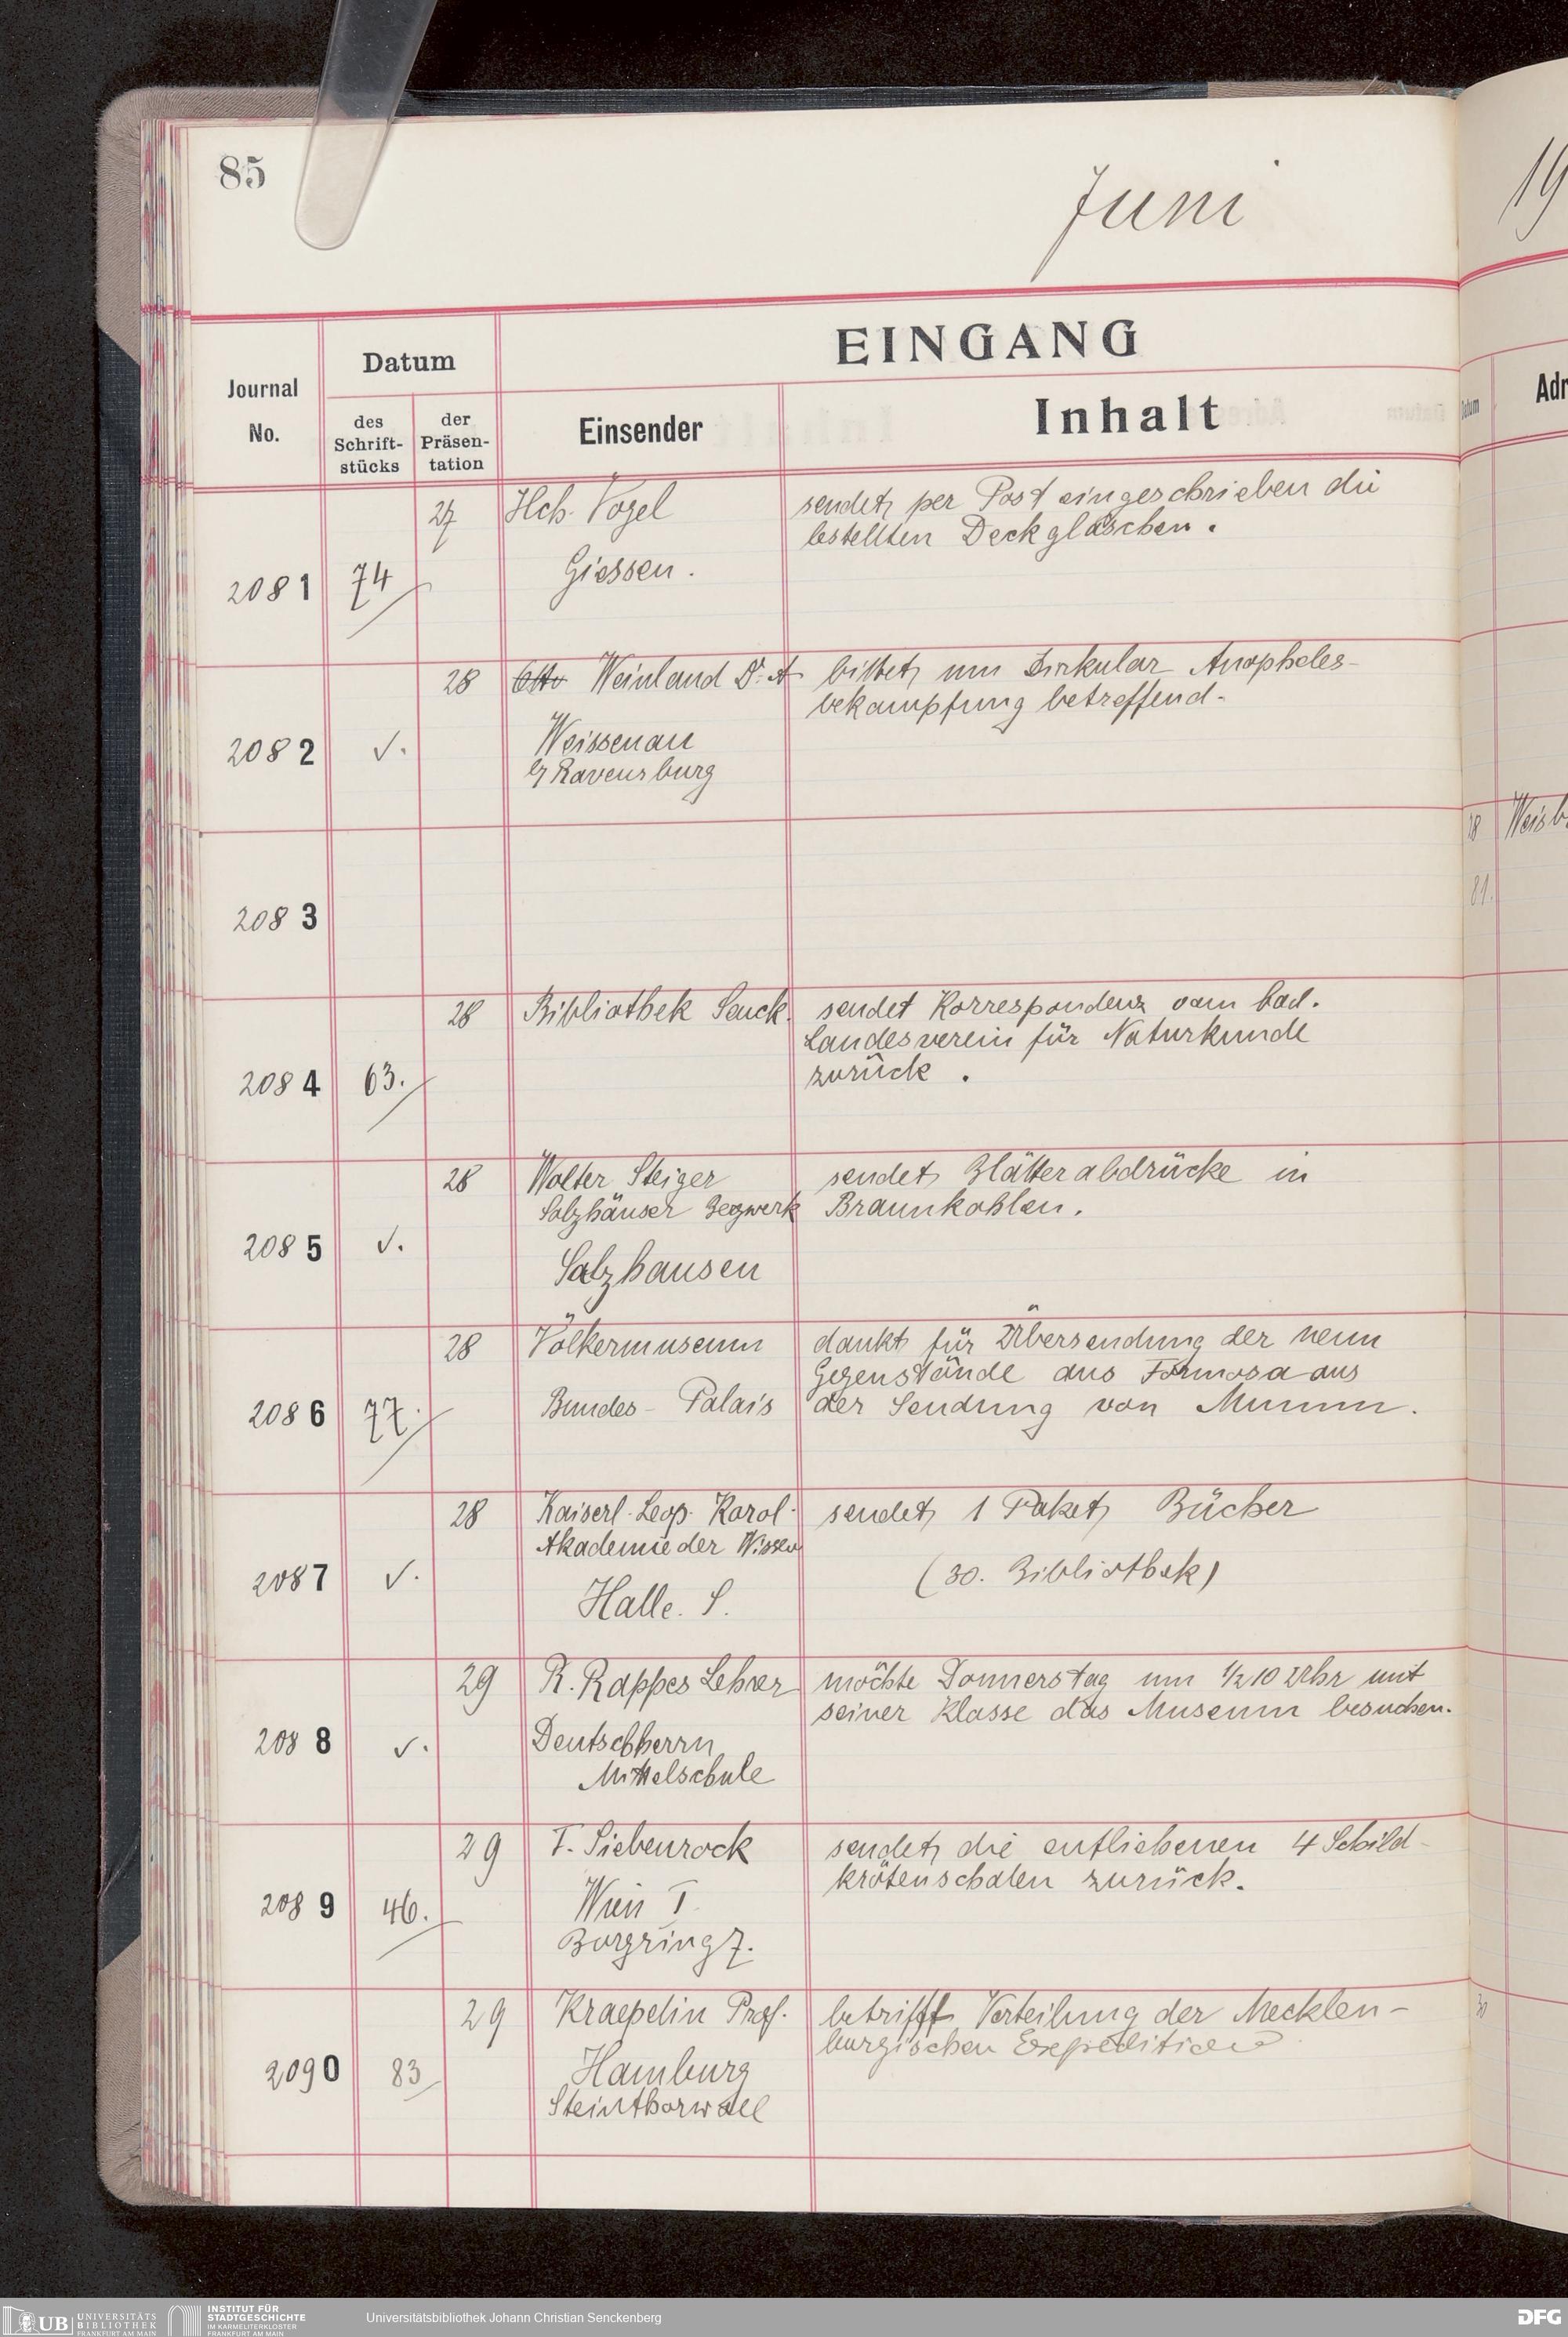 85
Juni
19
EINGANG
Journal
No.
Datum
des
Schrift-
stücks
der
Präsen-
tation
Einsender
Inhalt
Datum
Adr
2081
74
27
Hch. Vogel
Giessen.
sendet per Post eingeschrieben die
bestellten Deckgläschen.
2082
✓.
28
Otto Weinland Dr. A
Weissenau
b/ Ravensburg
bittet um Zirkular Anopheles-
bekämpfung betreffend.
2083
18
81.
Weisb
2084
63.
28
Bibliothek Senck.
sendet Korrespondenz vom bad.
Landesverein für Naturkunde
zurück.
2085
✓.
28
Walter Steiger
Salzhäuser Bergwerk
Salzhausen
sendet Blätterabdrücke in
Braunkohlen.
2086
77.
28
Völkermuseum
Bundes-Palais
dankt für Übersendung der neun
Gegenstände aus Formosa aus
der Sendung von Mumm.
2087
✓.
28
Kaiserl. Leop. Karol.
Akademie der Wissen
Halle. S.
sendet 1 Paket Bücher
(30. Bibliothek)
2088
✓.
29
R. Rappes Lehrer
Deutschherrn
Mittelschule
möchte Donnerstag um 1/2 10 Uhr mit
seiner Klasse das Museum besuchen.
2089
46.
29
F. Siebenrock
Wien I
Burgring 7.
sendet die entliehenen 4 Schild-
krötenschalen zurück.
2090
83
29
Kraepelin Prof.
Hamburg
Steinthorwall
betrifft Verteilung der Mecklen-
burgischen Expedition
30
UB UNIVERSITÄTS
BIBLIOTHEK
FRANKFURT AM MAIN
INSTITUT FÜR
STADTGESCHICHTE
IM KARMELITERKLOSTER
FRANKFURT AM MAIN
Universitätsbibliothek Johann Christian Senckenberg
DFG